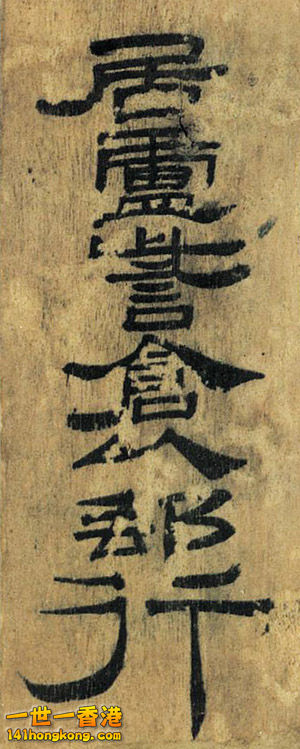 居盧訾倉以郵行
一世一香港
141hongkong.com